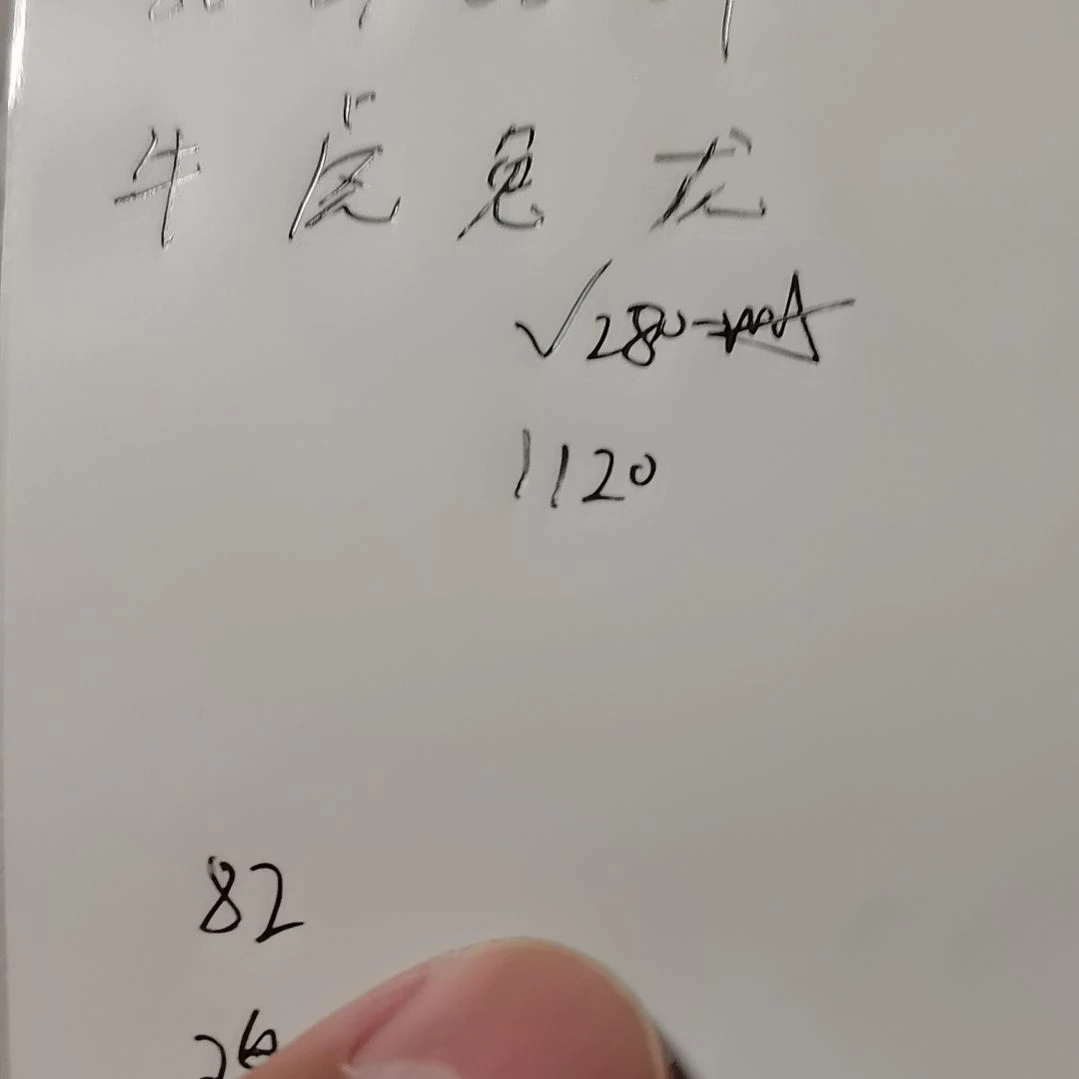 牛 虎 兔 龙
√280
1120
82
26